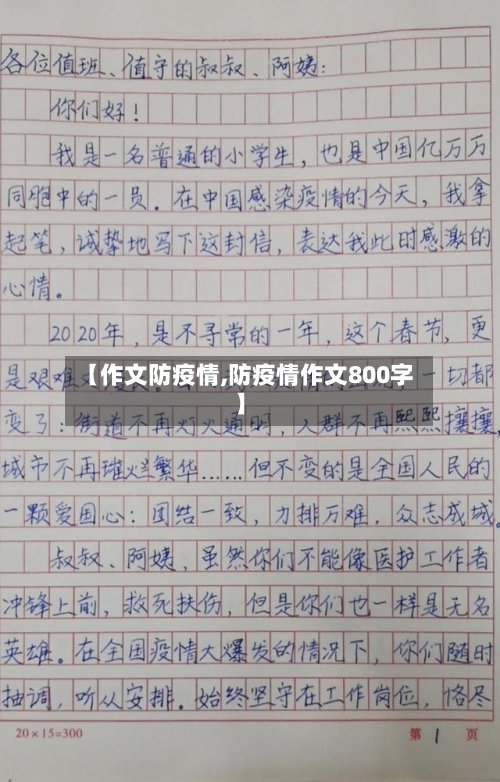 各位值班、值守的叔叔、阿姨：
你们好！
我是一名普通的小学生，也是中国亿万万
同胞中的一员。在中国感染疫情的今天，我拿
起笔，诚挚地写下这封信，表达我此时感激的
心情。
2020年，是不寻常的一年，这个春节，更
是艰难
一切都
【作文防疫情,防疫情作文800字
】
变了：街道不再灯火通明，人群不再熙熙攘攘，
城市不再璀烂繁华……但不变的是全国人民的
一颗爱国心：团结一致，力排万难，众志成城。
叔叔、阿姨，虽然你们不能像医护工作者
冲锋上前，救死扶伤，但是你们也一样是无名
英雄。在全国疫情大爆发的情况下，你们随时
抽调，听从安排。始终坚守在工作岗位，恪尽
20×15=300
第 1 页